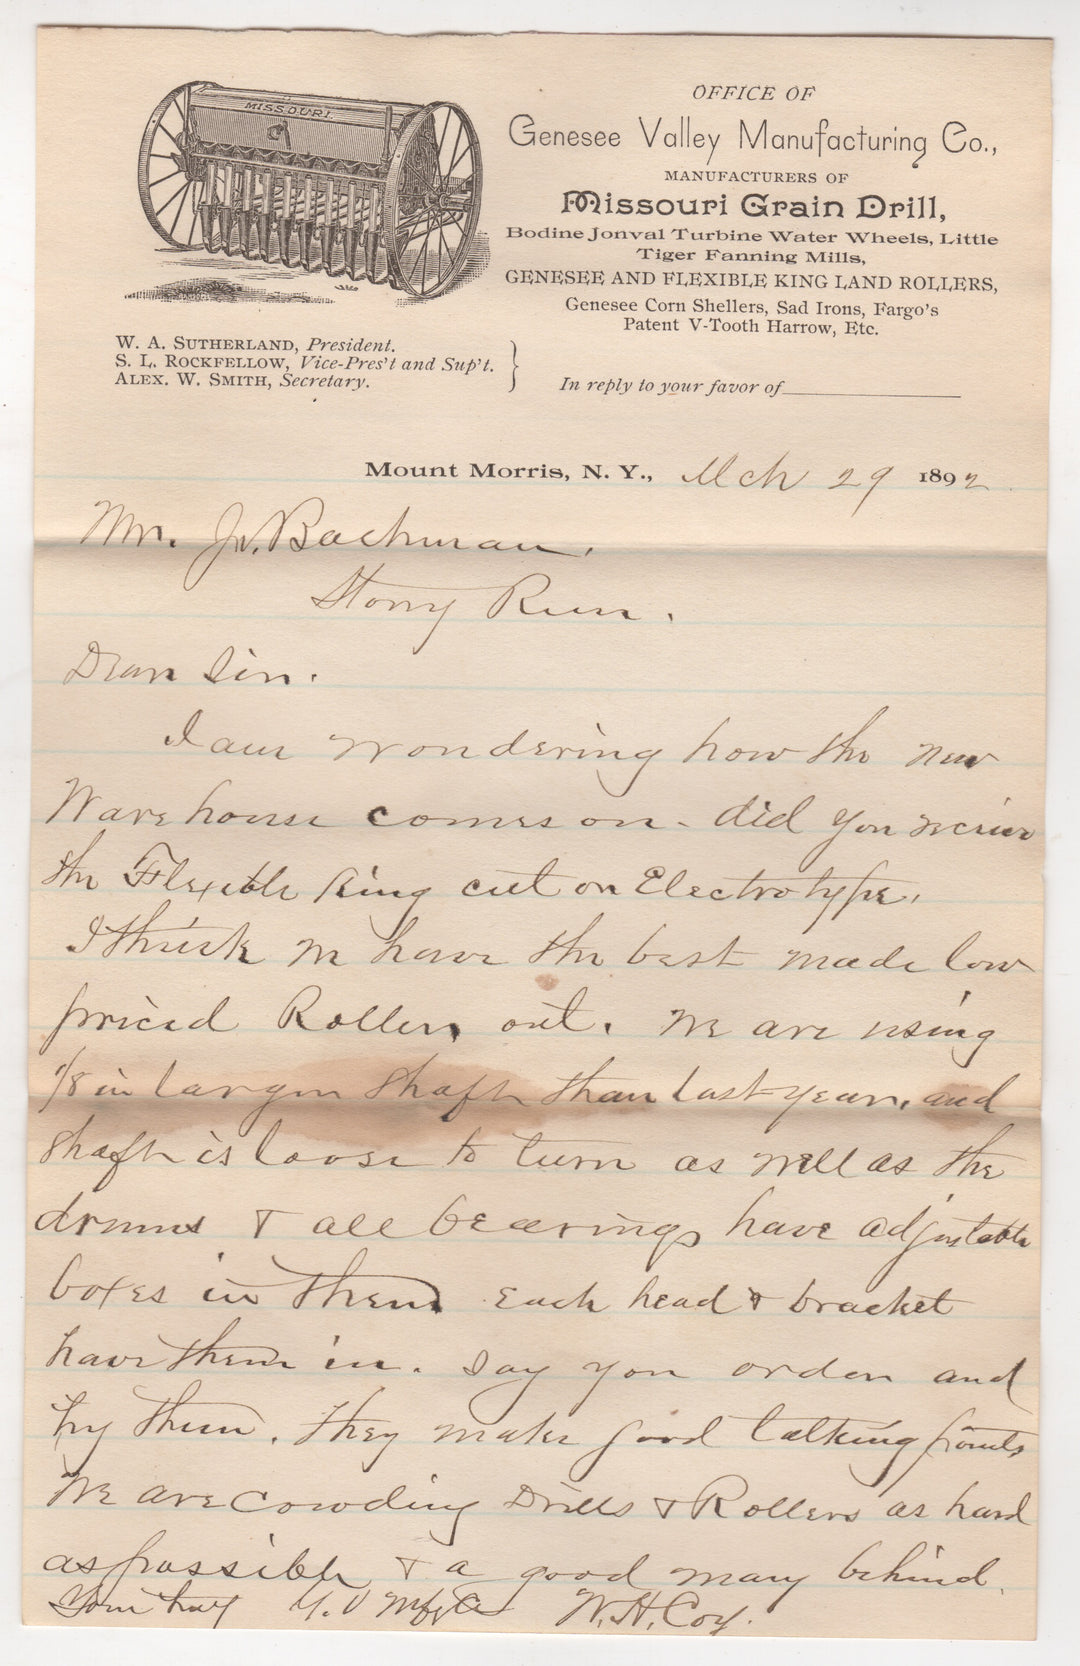 MISSOURI.
OFFICE OF
Genesee Valley Manufacturing Co.,
MANUFACTURERS OF
Missouri Grain Drill,
Bodine Jonval Turbine Water Wheels, Little
Tiger Fanning Mills,
GENESEE AND FLEXIBLE KING LAND ROLLERS,
Genesee Corn Shellers, Sad Irons, Fargo's
Patent V-Tooth Harrow, Etc.
W. A. SUTHERLAND, President.
S. L. ROCKFELLOW, Vice-Pres't and Sup't.
ALEX. W. SMITH, Secretary.
In reply to your favor of
Mount Morris, N. Y., Mch 29 1892
Mr. Bachman.
Stony Run.
Dear Sir.
I am wondering how the new
Warehouse comes on - did you recieve
the Flexible King cut or Electrotype.
I think we have the best made low
priced Rollers out. We are using
1/8 in larger shaft than last year, and
shaft is loose to turn as well as the
drums & all bearings have adjustable
boxes in them Each head & bracket
have them in. Say you order and
try them. They make good talking points
We are Cowding Drills & Rollers as hard
as possible & a good many behind.
Yours truly G. V Mfg Co W. H. Coy.